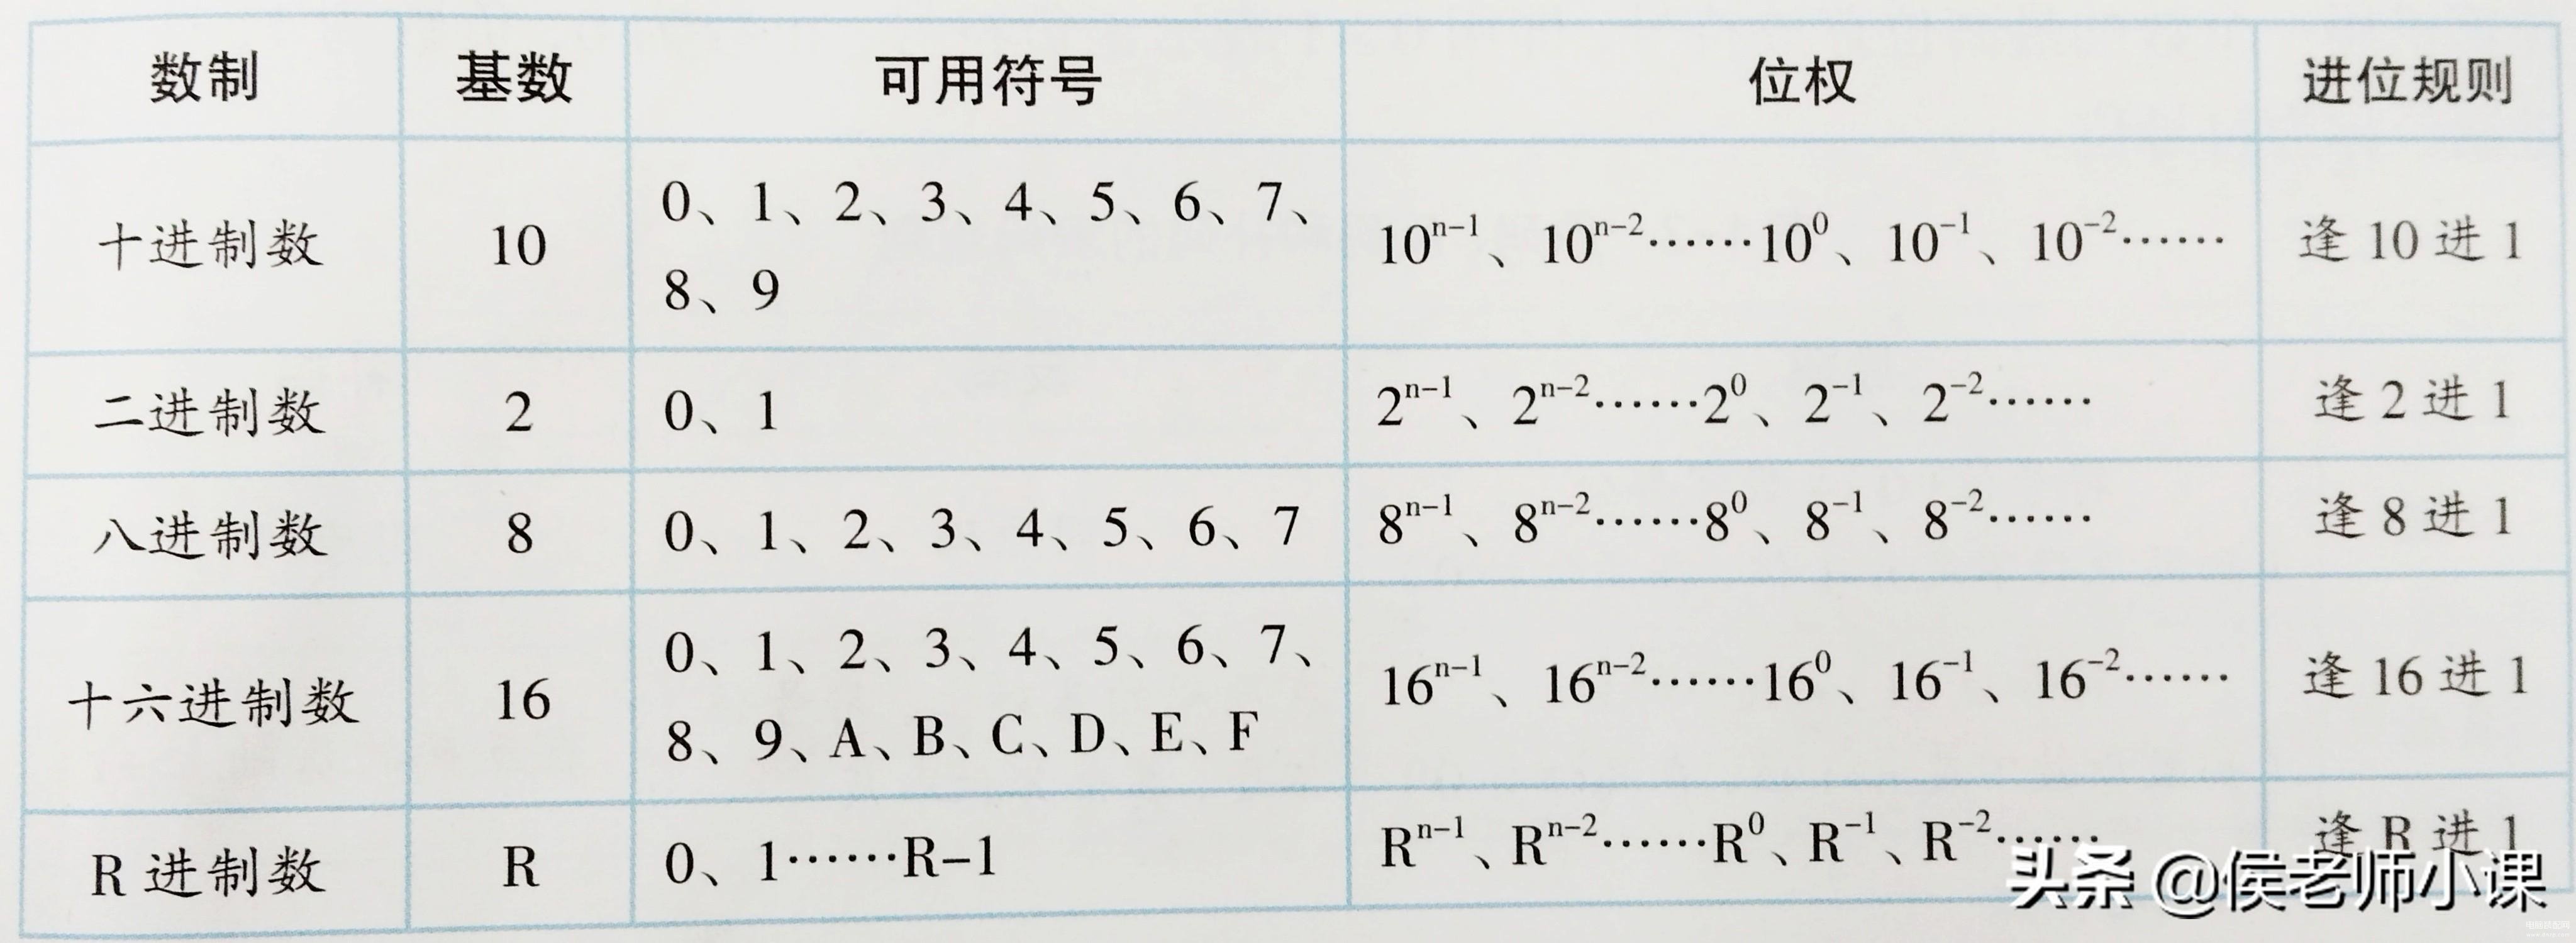 数制 基数 可用符号 位权 进位规则
十进制数 10 0、1、2、3、4、5、6、7、
8、9 10ⁿ⁻¹、10ⁿ⁻²……10⁰、10⁻¹、10⁻²…… 逢 10 进 1
二进制数 2 0、1 2ⁿ⁻¹、2ⁿ⁻²……2⁰、2⁻¹、2⁻²…… 逢 2 进 1
八进制数 8 0、1、2、3、4、5、6、7 8ⁿ⁻¹、8ⁿ⁻²……8⁰、8⁻¹、8⁻²…… 逢 8 进 1
十六进制数 16 0、1、2、3、4、5、6、7、
8、9、A、B、C、D、E、F 16ⁿ⁻¹、16ⁿ⁻²……16⁰、16⁻¹、16⁻²…… 逢 16 进 1
R 进制数 R 0、1……R-1 Rⁿ⁻¹、Rⁿ⁻²……R⁰、R⁻¹、R⁻²…… 逢 R 进 1
头条 @侯老师小课